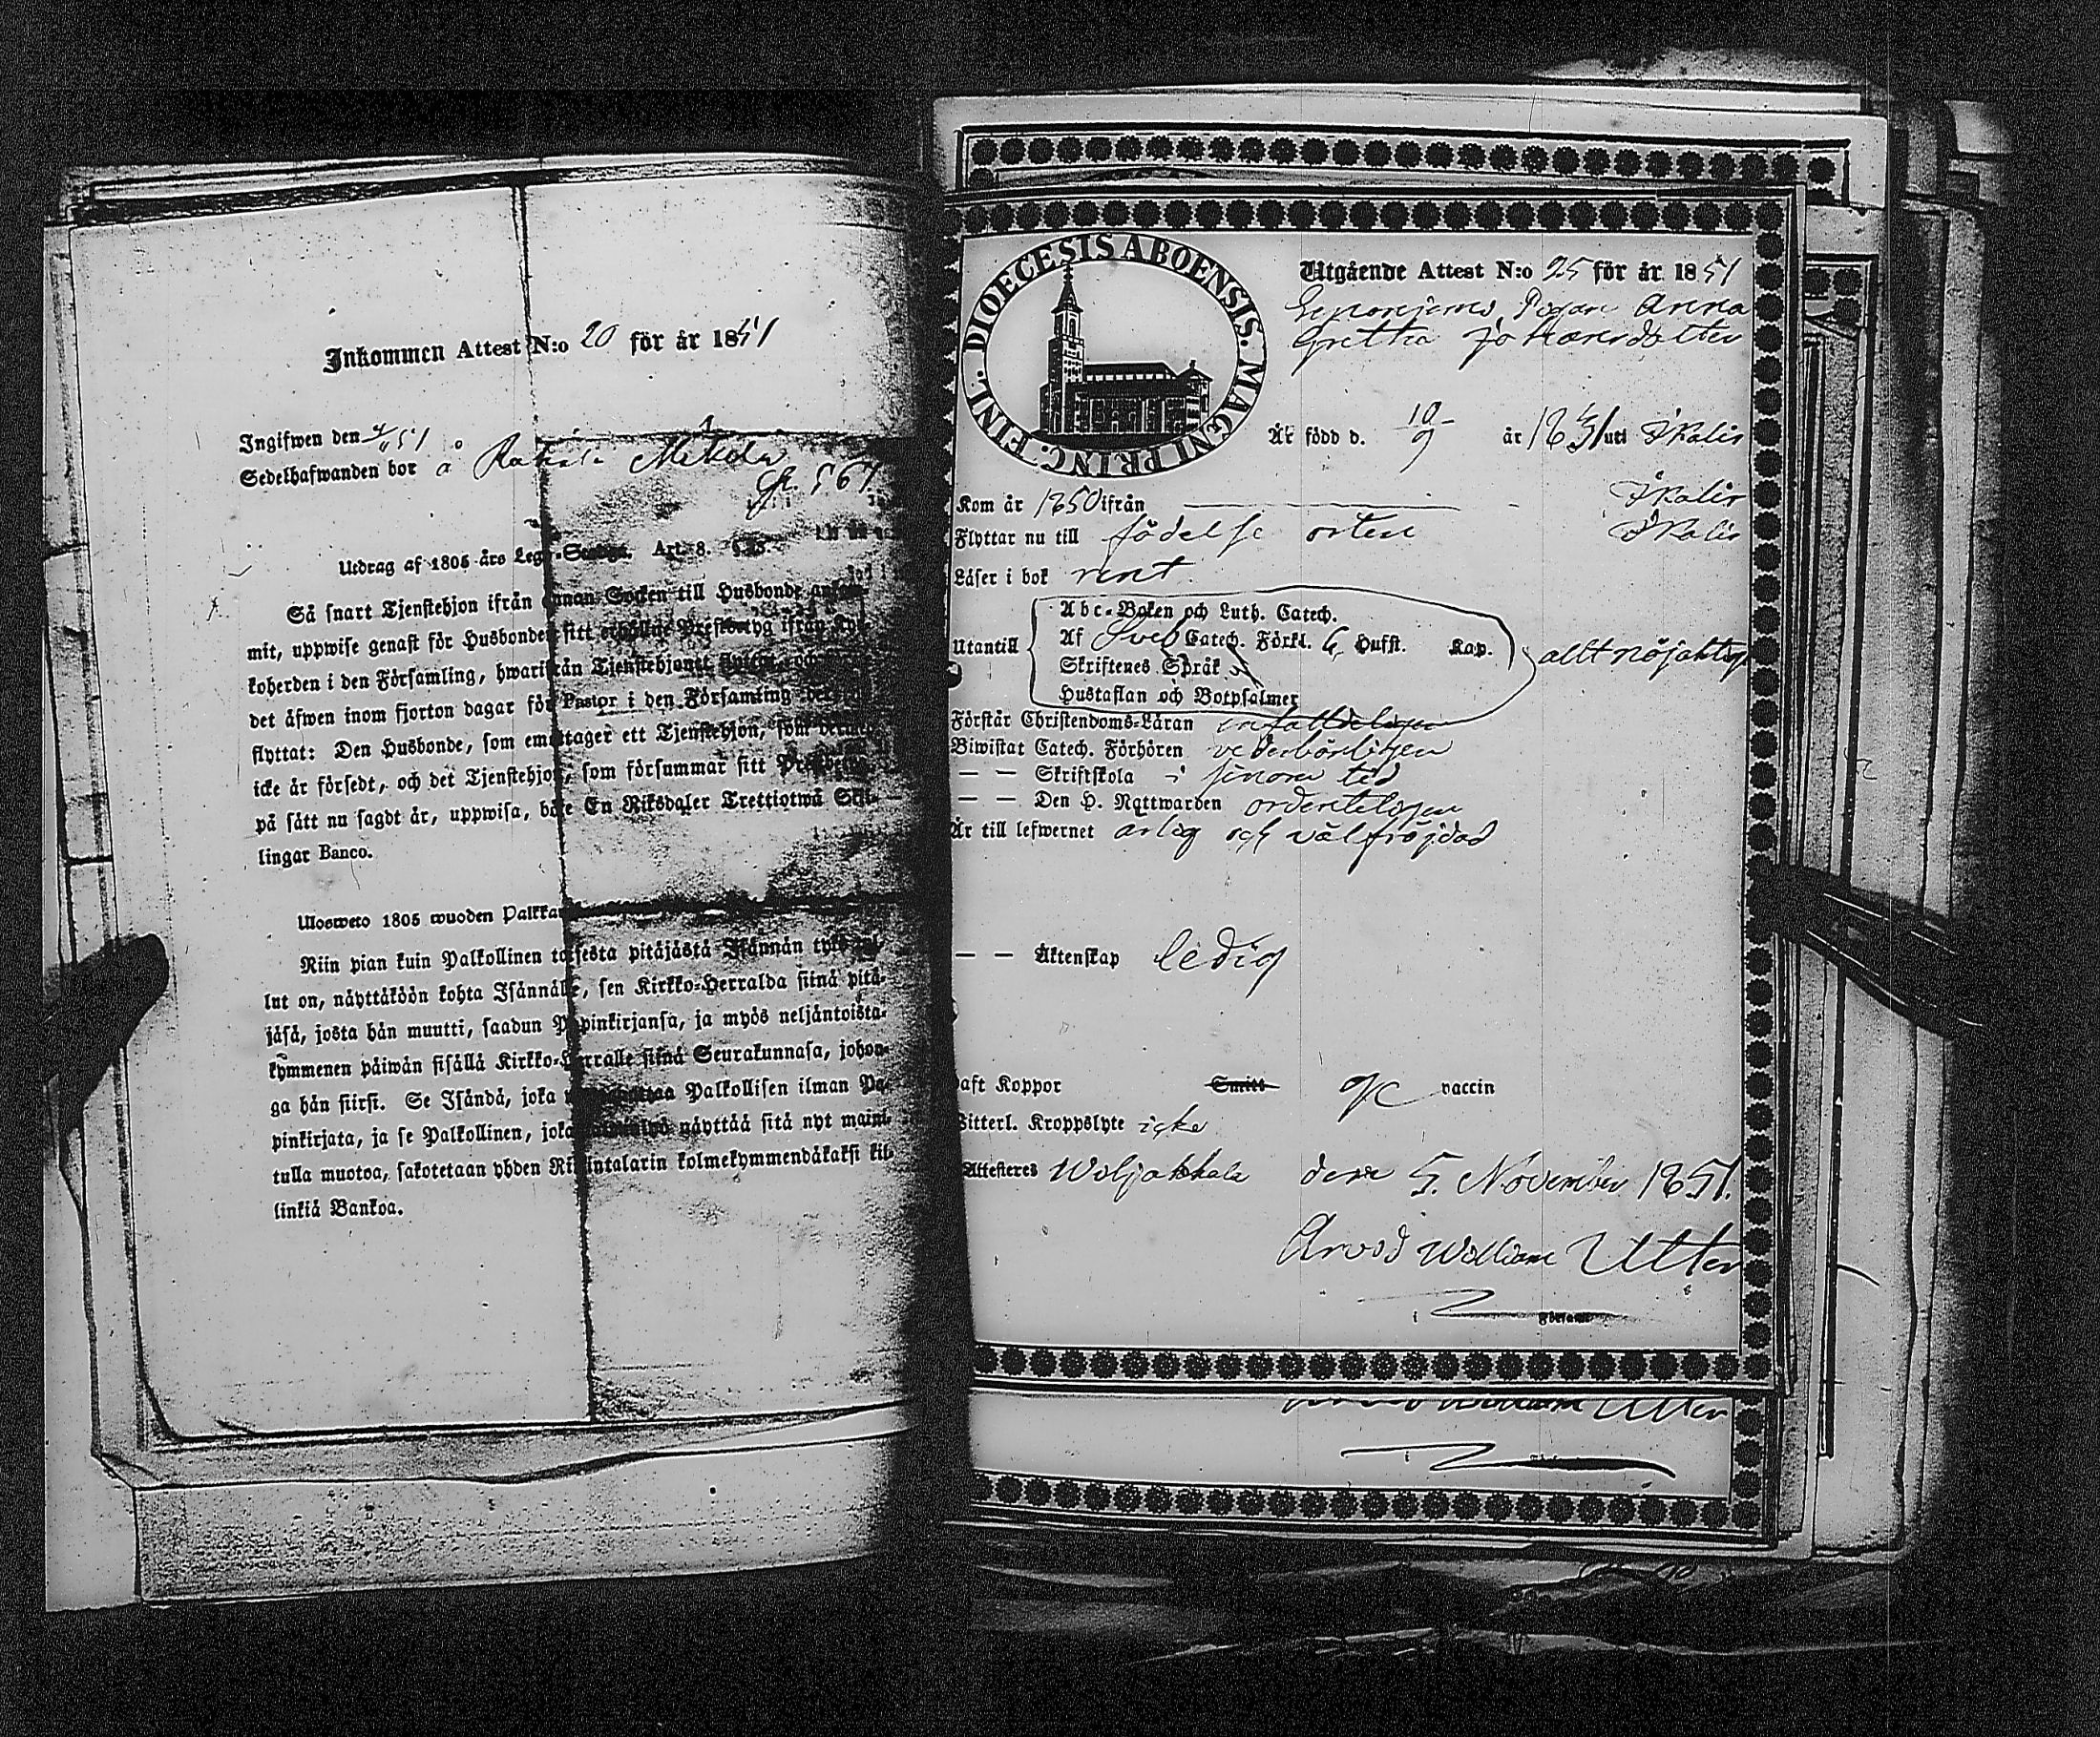 Inkommen Attest N:o 20 för år 1851
Ingifwen den
Sedelhafwanden bor å
Utdrag af 1805 års Lego-Stadga. Art. 8.
Så snart Tjenstehjon ifrån annan Socken till Husbonde
mit, uppwise genast för Husbonden sitt erhållne Prestbetyg ifrån Kyr-
koherden i den Församling, hwarifrån Tjenstehjonet
det äfwen inom fjorton dagar för Pastor i den Församling
flyttat: Den Husbonde, som emottager ett Tjenstehjon, som
icke är försedt, och det Tjenstehjon, som försummar sitt
på sätt nu sagdt är, uppwisa, böte En Riksdaler Trettiotwå Skil-
lingar Banco.
Ulosweto 1805 wuoden Palkka
Niin pian kuin Palkollinen toisesta pitäjästä Isännän tykö
lut on, näyttäköön kohta Isännälle, sen Kirkko-Herralda siinä pitä-
jäsä, josta hän muutti, saadun Papinkirjansa, ja myös neljäntoista-
kymmenen päiwän sisällä Kirkko-Herralle siinä Seurakunnasa, johon-
ga hän siirsi. Se Isändä, joka Palkollisen ilman Pa-
pinkirjata, ja se Palkollinen, joka näyttää sitä nyt maini-
tulla muotoa, sakotetaan yhden Riikintalarin kolmekymmendäkaksi kil-
linkiä Bankoa.
DIOECESIS ABOENSIS. MAGNI PRINC. FINL.
Utgående Attest N:o 25 för år 1851
Pigan Anna
Gretha Johansdotter
Är född d. 10/9 år 1831 uti Ikalis
Kom år 1850 ifrån Ikalis
Flyttar nu till födelse orten Ikalis
Läser i bok rent
Utantill
Abc-Boken och Luth. Catech.
Af Sveb Catech. Förkl. 6 Hufst. Kap.
Skriftenes Språk
Hustaflan och Botpsalmer
allt nöjaktigt
Förstår Christendoms-Läran enfalldeligen
Biwistat Catech. Förhören vederbörligen
— — Skriftskola i sinom tid
— — Den H. Nattwarden ordenteligen
Är till lefwernet ärlig och väl fräjdad
— — Äktenskap ledig
aft Koppor Smitt vaccin
itterl. Kroppslyte icke
Attesteres Wiljakkala den 5. November 1851.
Arvid William Utter
i
William Utter
i